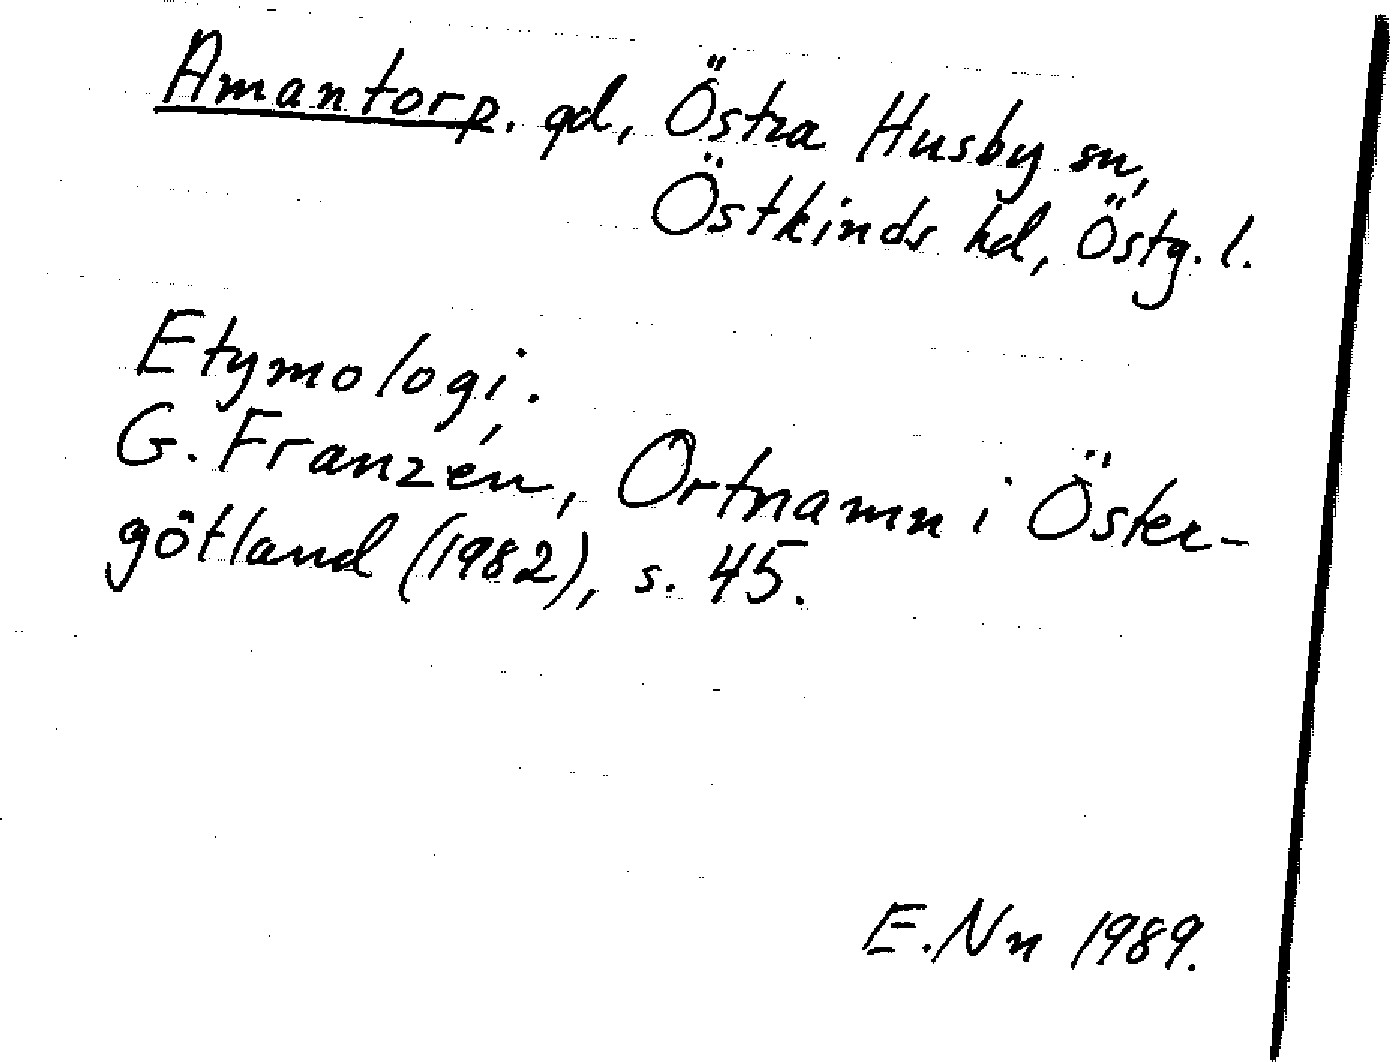 Amantorp. gd, Östra Husby sn,
Östkinds hd, Östg. l.
Etymologi.
G. Franzén, Ortnamn i Öster-
götland (1982), s. 45.
E. Nn 1989.